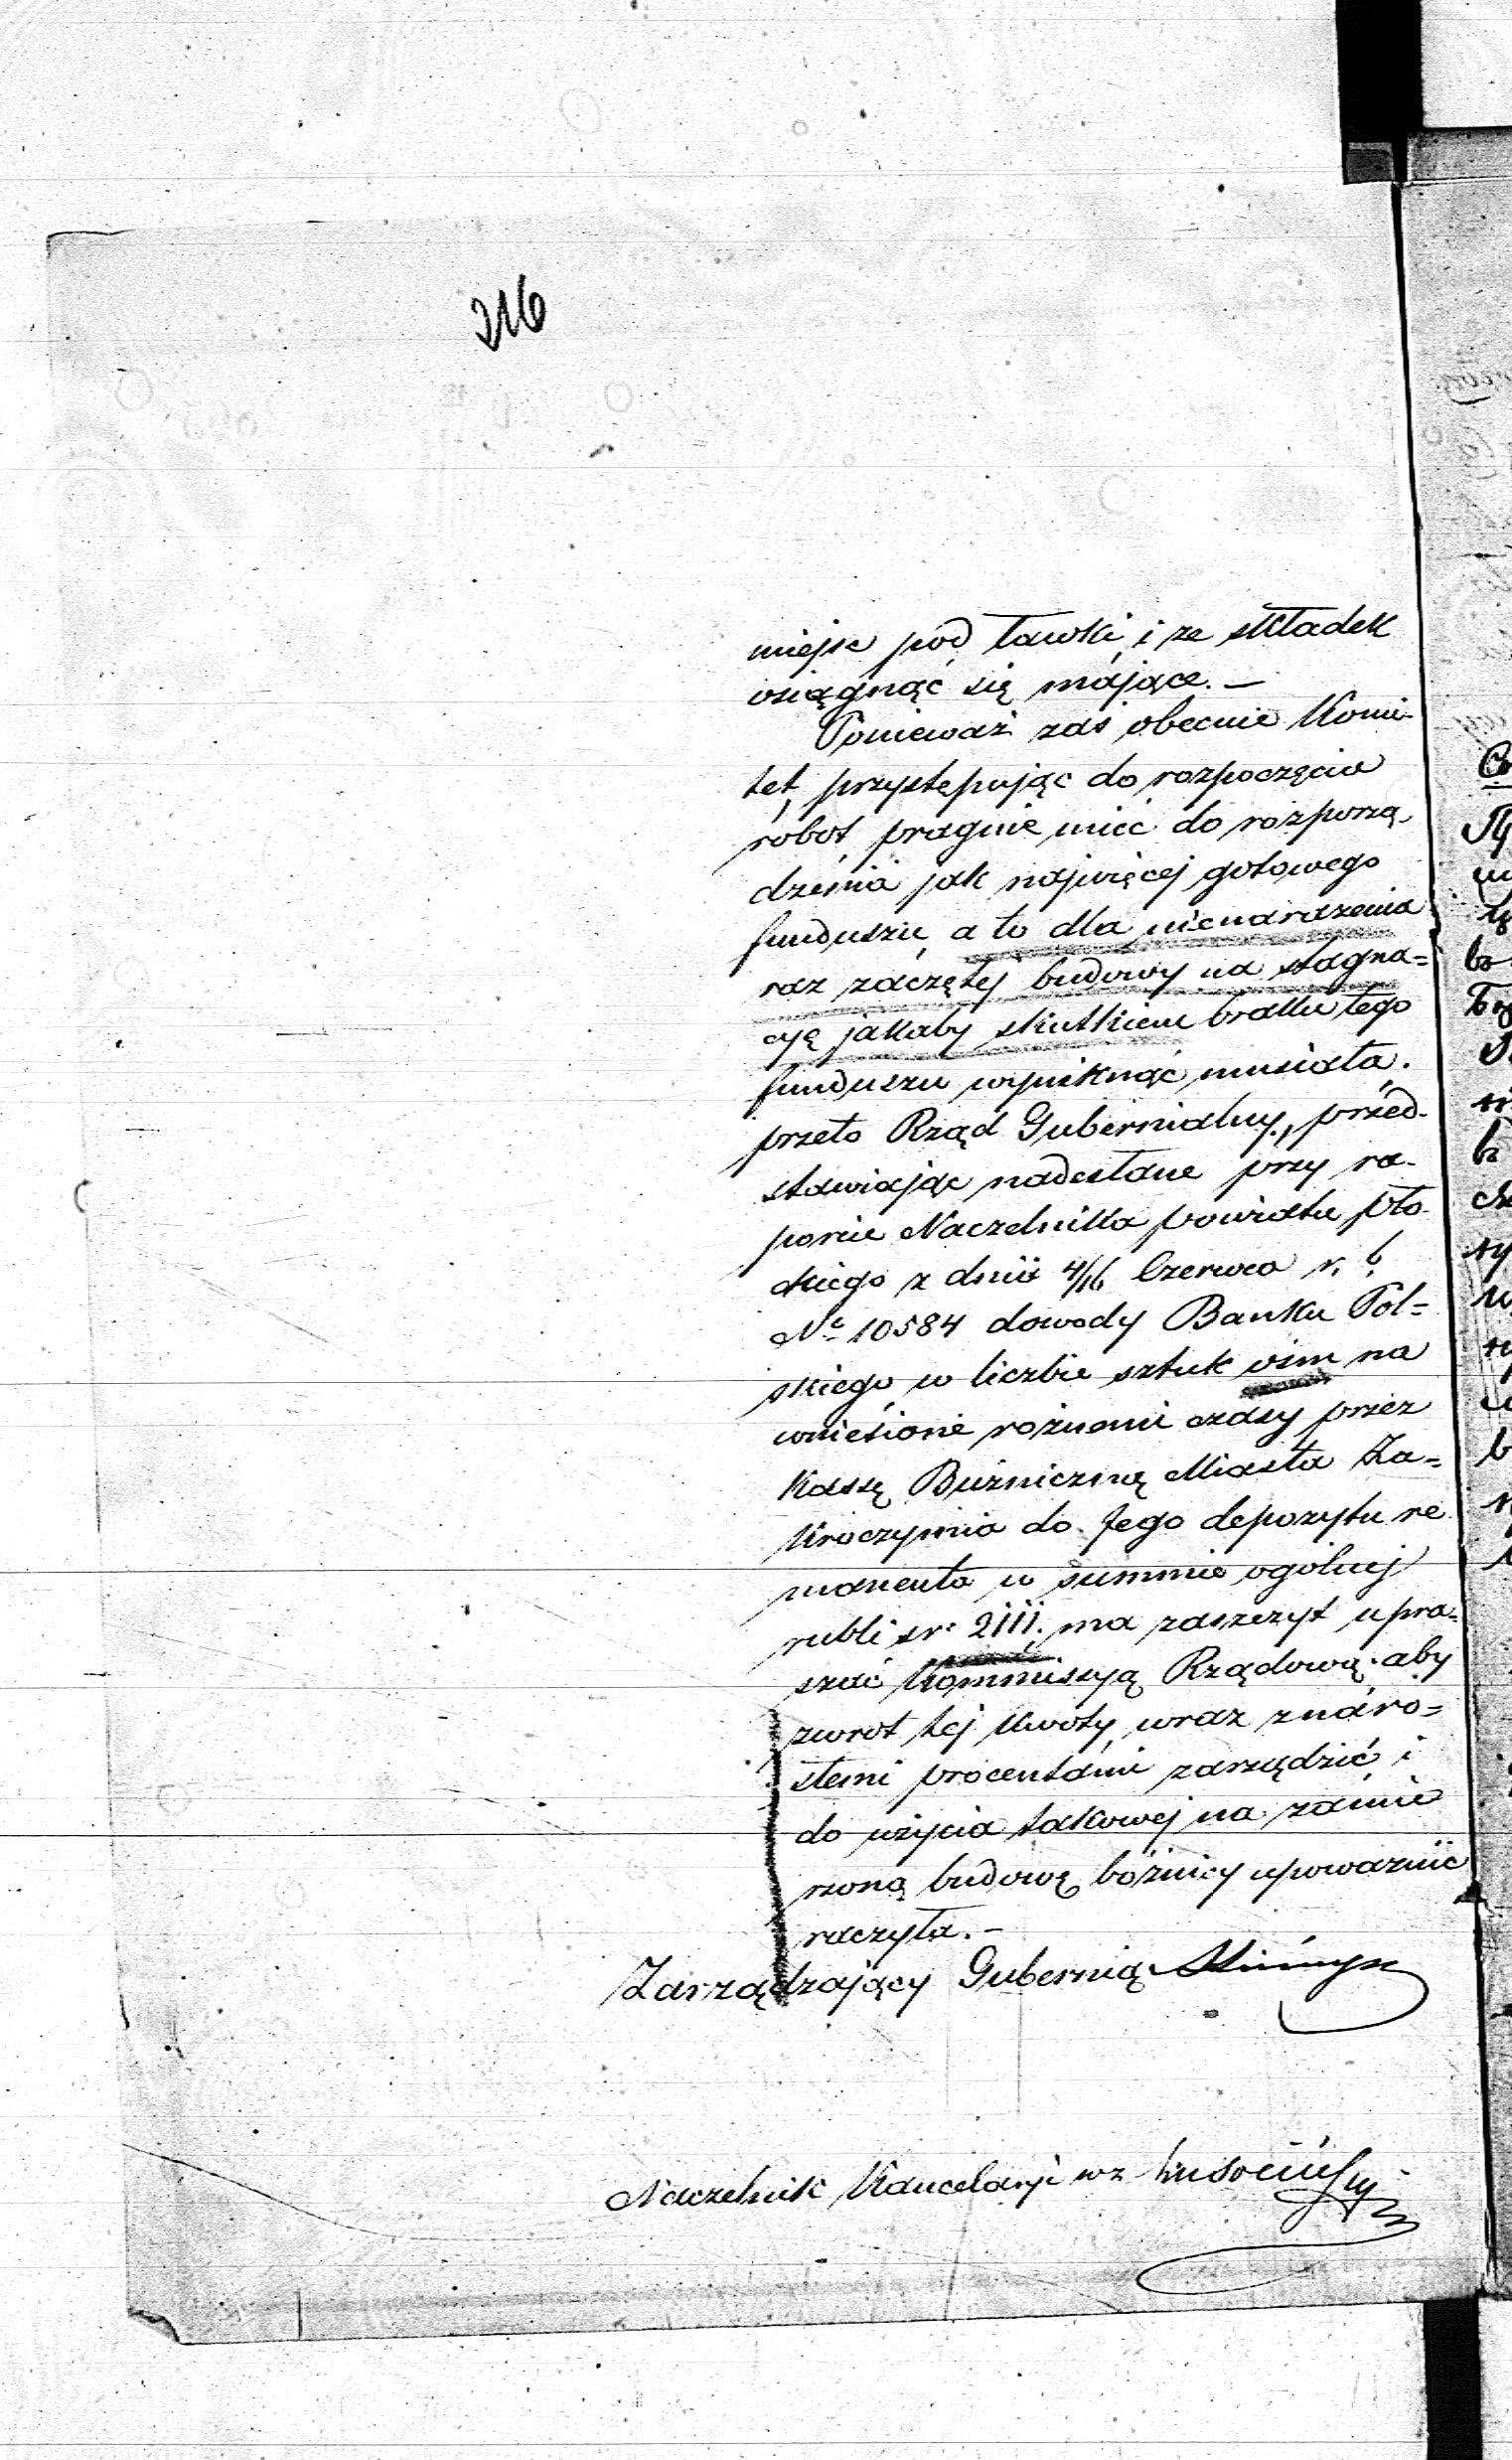 216
miejsc pod ławki i ze składek
osiągnąć się mające. —
Ponieważ zaś obecnie Komi-
tet, przystępując do rozpoczęcia
robot, pragnie mieć do rozporzą-
dzenia jak najwięcej gotowego
funduszu, a to dla nienarażenia
raz zaczętej budowy na stagna=
cyę jakaby skutkiem braku tego
funduszu wyniknąć musiała.
przeto Rząd Gubernialny, przed-
stawiając nadesłane przy ra-
porcie Naczelnika powiatu pło-
ckiego z dnia 4/16 Czerwca r. b.
No 10584 dowody Banku Pol=
skiego w liczbie sztuk ośm na
wniesione rożnemi czasy przez
Kassę Bużniczną Miasta Za=
kroczymia do Jego depozytu re
manenta w summie ogólnej
rubli sr. 2111. ma zaszczyt upra=
szać Kommissyą Rządową aby
zwrot tej kwoty wraz z naro=
słemi procentami zarządzić i
do użycia takowej na zamie
rzoną budowę bóżnicy upoważnić
raczyła. —
Zarządzający Gubernią
Naczelnik Kancelaryi wz